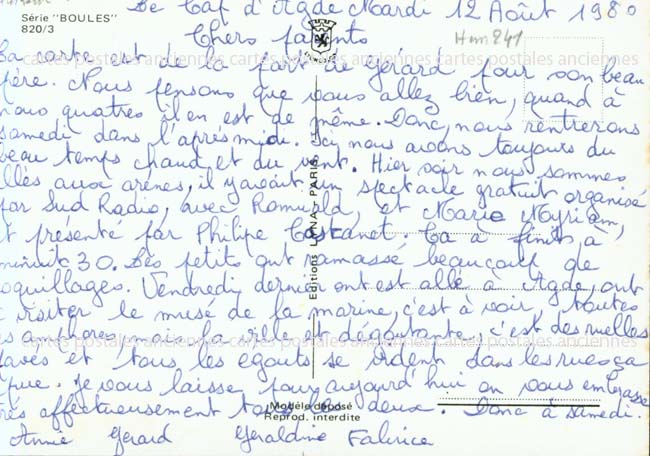 Le Cap d'Agde Mardi 12 Août 1980
Série "BOULES"
820/3
Chers parents
Hum 241
La carte est de la part de Gérard pour son beau
père. Nous pensons que vous allez bien, quand à
nous quatres il en est de même. Donc, nous rentrerons
samedi dans l'après midi. Ici nous avons toujours du
beau temps chaud et du vent. Hier soir nous sommes
allés aux arènes, il y avait un spectacle gratuit organisé
par Sud Radio, avec Romuald, et Marie Myriam,
et présenté par Philipe Costanet, Ça à finits à
minuit 30. Les petits ont ramassé beaucoup de
coquillages. Vendredi dernier ont est allé à Agde, ont
a visiter le musé de la marine, c'est à voir, toutes
les amphores, mais la ville est dégoutante, c'est des ruelles
pavés et tous les egouts se vident dans les rues ça
pue. Je vous laisse pour aujourd'hui on vous embrasse
très affectueusement tous les deux. Donc à samedi.
Annie Gerard Geraldine Fabrice
Editions LYNA - PARIS
Modèle déposé
Reprod. interdite
cartes postales anciennes cartes postales anciennes cartes postales anciennes
cartes postales anciennes cartes postales anciennes cartes postales anciennes